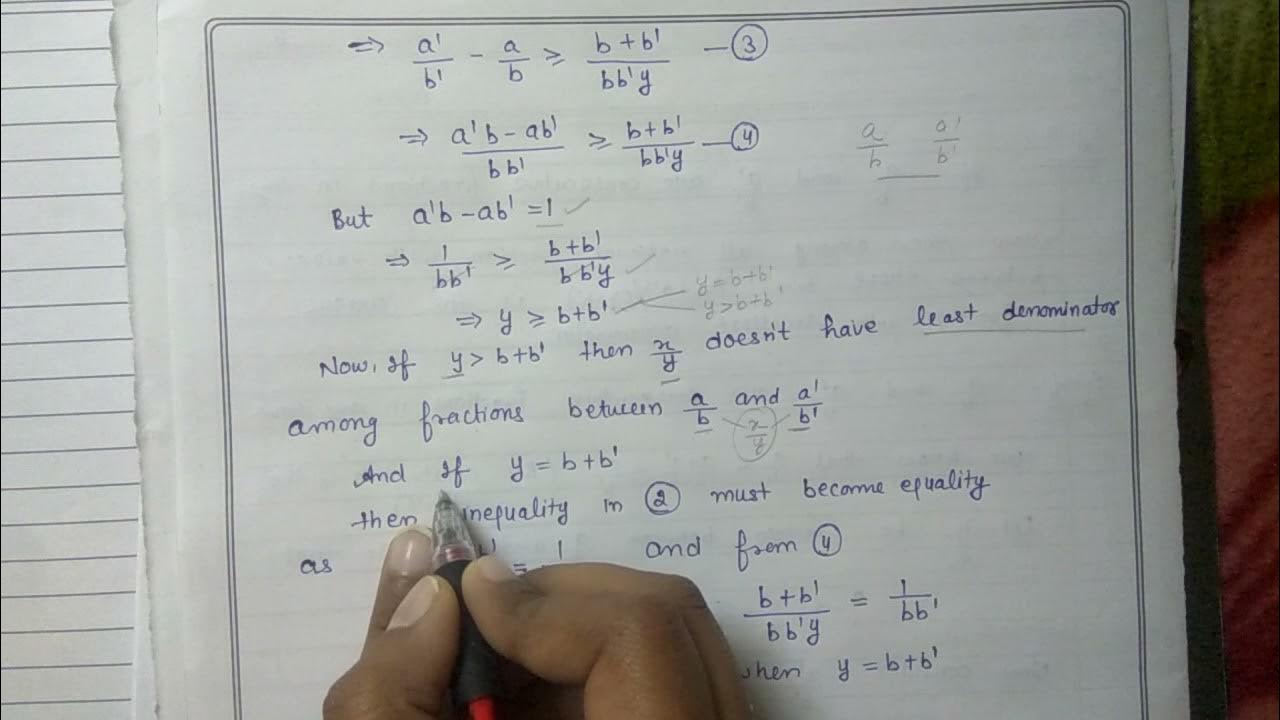 ⇒ a'/b' - a/b ≥ (b+b')/(bb'y) — ③
⇒ (a'b - ab')/(bb') ≥ (b+b')/(bb'y) — ④
a/b a'/b'
But a'b - ab' = 1 ✓
⇒ 1/(bb') ≥ (b+b')/(bb'y) ✓
y = b+b'
⇒ y ≥ b+b'
y > b+b'
Now, If y > b+b' then x/y doesn't have least denominator
among fractions between a/b and a'/b'
x/y
And If y = b+b'
then inequality in ② must become equality
as = 1 and from ④
(b+b')/(bb'y) = 1/(bb')
when y = b+b'